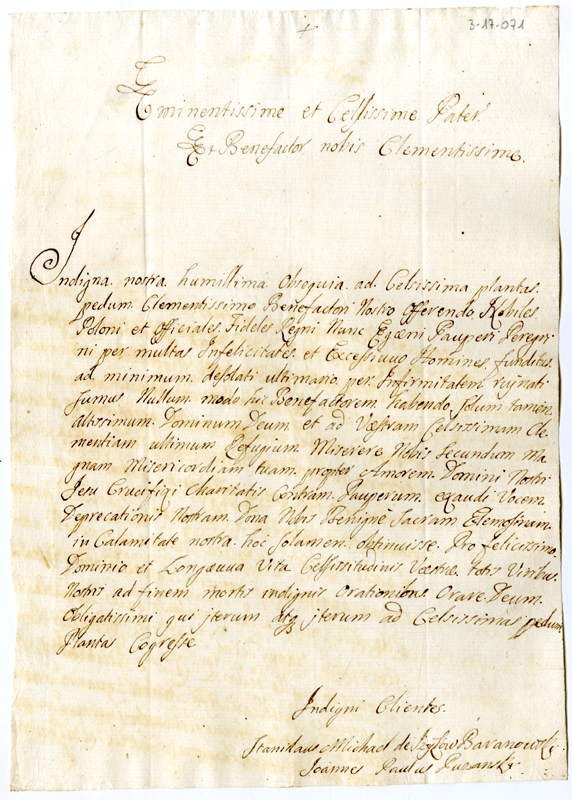 3-17-071
Eminentissime et Celsissime Pater
Et Benefactor nobis Clementissime.
Indigna nostra humillima Obsequia ad Celsissima plantas
pedum Clementissimo Benefactori Nostro Offerendo Nobiles
Poloni et Officiales Fideles Regni Nunc Egæni Pauperi Peregri
ni per multas Infelicitates et Excessivuo Homines funditus
ad minimum desolati ultimario per Infirmitatem rujnati
sumus Nullum modo hic Benefactorem habendo solum tamen
Altissimum Dominum Deum et ad Væstram Celsissimam Cle
mentiam ultimum Refugium Miserere Nobis Secundum Ma
gnam Misericordiam tuam propter Amorem Domini Nostri
Jesu Crucifixi Charitatis Pauperum exaudi Vocem
Deprecationis Nostram Dona Nobis Benignè Sacram Elemosinam
in Calamitate nostra hoc solamen obtinuisse Pro felicissimo
Dominio et Longæva Vita Celsissitudinis Væstræ totis Viribus
Nostris ad finem mortis indignis Orationibus Orare Deum
Obligatissimi qui jterum atq jterum ad Celsissimas pedum
Plantas Cogresse
Indigni Clientes
Stanislaus Michael de Baranowski
Joannes Paulus